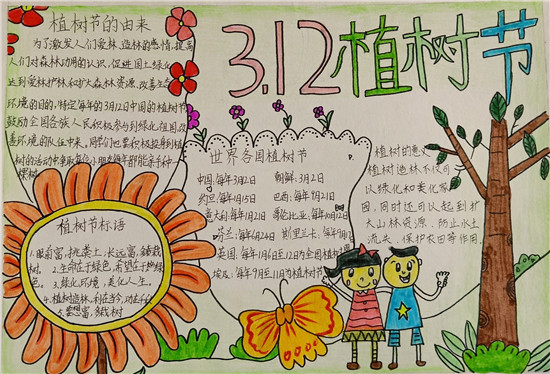 3.12植树节
植树节的由来
为了激发人们爱林、造林的感情,提高
人们对森林功用的认识,促进国土绿化
达到爱林护林和扩大森林资源、改善生态
环境的目的,特定每年的3月12日中国的植树节
鼓励全国各族人民积极参与到绿化祖国,改
善环境的队伍中来,同学们也要积极投身到植
树的活动中来
棵树
世界各国植树节
中国:每年3月12日
朝鲜:每年3月2日
约旦:每年1月15日
巴西:每年9月21日
意大利:每年11月21日
哥伦比亚:每年10月12日
芬兰:每年6月24日
斯里兰卡:每年
英国:每年1月6日至12日为全国植树
埃及:每年9月至11月为植树节
植树的意义
植树造林不仅可
以绿化和美化家
园,同时还可以起到扩
大山林资源、防止水土
流失、保护农田等作用。
植树节标语
1.眼前富,挑粪土,长远富,多栽
树 2.生命在于绿色,希望在于护绿
色。 3.绿化环境,美化人生。
4.植树造林,利在当今,功在千秋
5.要想富,多栽树